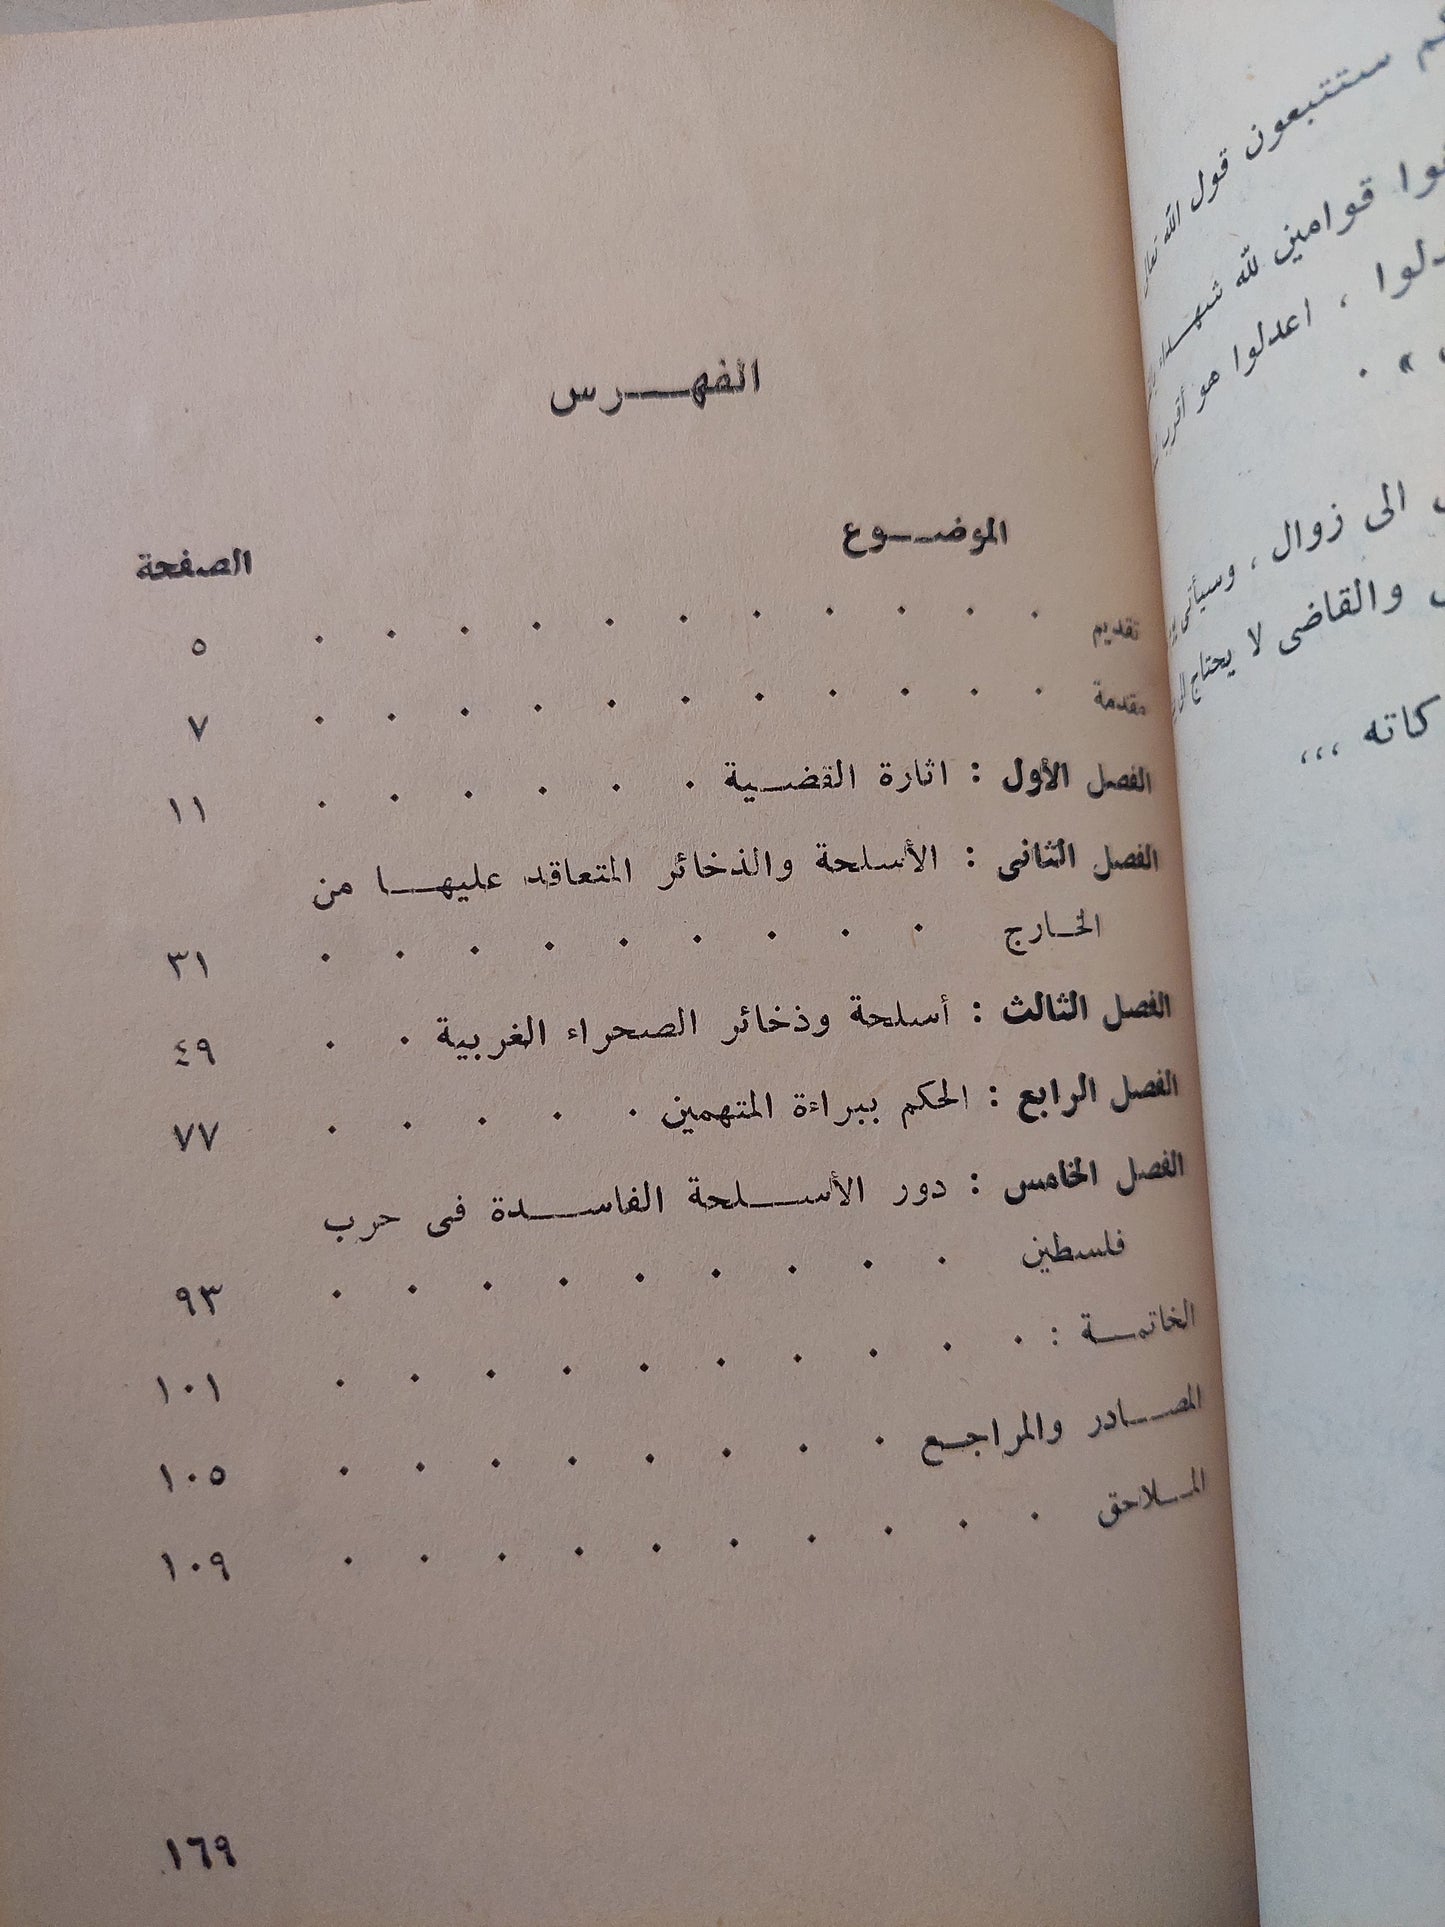 الفهرس
الموضوع الصفحة
تقديم . . . . . . . . . . . ٥
مقدمة . . . . . . . . . . . ٧
الفصل الأول : اثارة القضية . . . . . . ١١
الفصل الثانى : الأسلحة والذخائر المتعاقد عليها من
الخارج . . . . . . . . . ٣١
الفصل الثالث : أسلحة وذخائر الصحراء الغربية . . ٤٩
الفصل الرابع : الحكم ببراءة المتهمين . . . . . ٧٧
الفصل الخامس : دور الأسلحة الفاسدة فى حرب
فلسطين . . . . . . . . . ٩٣
الخاتمة : . . . . . . . . . . ١٠١
المصادر والمراجع . . . . . . . . ١٠٥
الملاحق . . . . . . . . . . ١٠٩
١٦٩
ستتبعون قول الله
قوامين لله شهداء
، اعدلوا هو أقرب
» .
الى زوال ، وسيأتى
والقاضى لا يحتاج الى
،،،